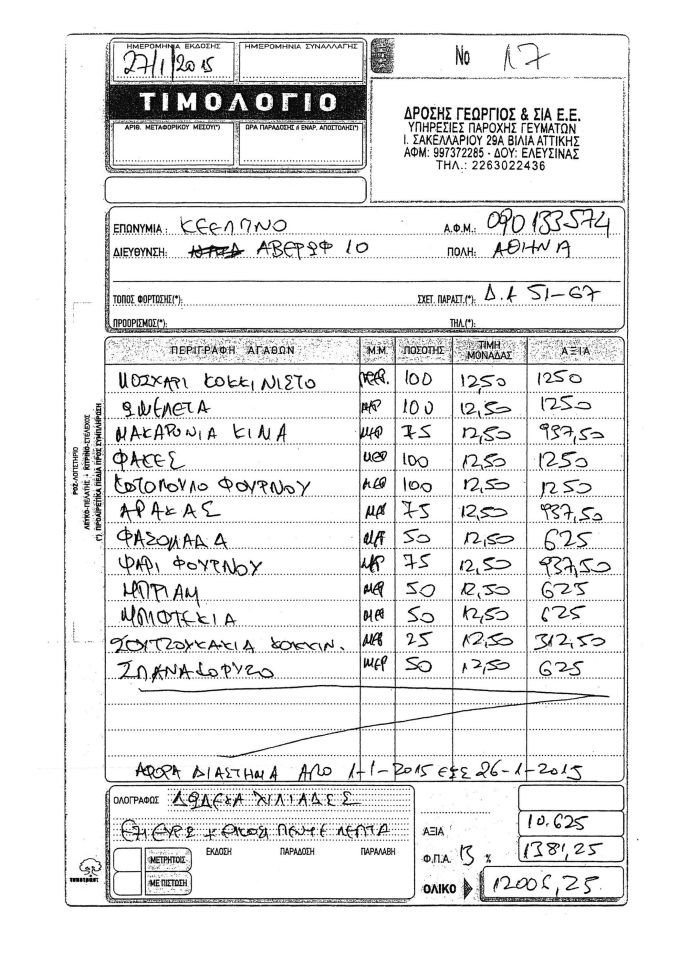 ΗΜΕΡΟΜΗΝΙΑ ΕΚΔΟΣΗΣ ΗΜΕΡΟΜΗΝΙΑ ΣΥΝΑΛΛΑΓΗΣ
27/1/2015
Νο 17
ΤΙΜΟΛΟΓΙΟ
ΑΡΙΘ. ΜΕΤΑΦΟΡΙΚΟΥ ΜΕΣΟΥ(*) ΩΡΑ ΠΑΡΑΔΟΣΗΣ ή ΕΝΑΡ. ΑΠΟΣΤΟΛΗΣ(*)
ΔΡΟΣΗΣ ΓΕΩΡΓΙΟΣ & ΣΙΑ Ε.Ε.
ΥΠΗΡΕΣΙΕΣ ΠΑΡΟΧΗΣ ΓΕΥΜΑΤΩΝ
Ι. ΣΑΚΕΛΛΑΡΙΟΥ 29Α ΒΙΛΙΑ ΑΤΤΙΚΗΣ
ΑΦΜ: 997372285 - ΔΟΥ: ΕΛΕΥΣΙΝΑΣ
ΤΗΛ.: 2263022436
ΕΠΩΝΥΜΙΑ: ΚΕΕΛΠΝΟ Α.Φ.Μ.: 090133574
ΔΙΕΥΘΥΝΣΗ: ΑΒΕΡΩΦ 10 ΠΟΛΗ: ΑΘΗΝΑ
ΤΟΠΟΣ ΦΟΡΤΩΣΗΣ(*): ΣΧΕΤ. ΠΑΡΑΣΤ.(*): Δ.Α 51-67
ΠΡΟΟΡΙΣΜΟΣ(*): ΤΗΛ.(*):
ΠΕΡΙΓΡΑΦΗ ΑΓΑΘΩΝ Μ.Μ. ΠΟΣΟΤΗΣ ΤΙΜΗ ΜΟΝΑΔΑΣ ΑΞΙΑ
ΜΟΣΧΑΡΙ ΚΟΚΚΙΝΙΣΤΟ ΜΕΡ. 100 12,50 1250
ΩΜΕΛΕΤΑ ΜΕΡ 100 12,50 1250
ΜΑΚΑΡΟΝΙΑ ΚΙΜΑ ΜΕΡ 75 12,50 937,50
ΦΑΚΕΣ ΜΕΡ 100 12,50 1250
ΚΟΤΟΠΟΥΛΟ ΦΟΥΡΝΟΥ ΜΕΡ 100 12,50 1250
ΑΡΑΚΑΣ ΜΕΡ 75 12,50 937,50
ΦΑΣΟΛΑΔΑ ΜΕΡ 50 12,50 625
ΨΑΡΙ ΦΟΥΡΝΟΥ ΜΕΡ 75 12,50 937,50
ΜΠΡΙΑΜ ΜΕΡ 50 12,50 625
ΜΠΙΦΤΕΚΙΑ ΜΕΡ 50 12,50 625
ΣΟΥΤΖΟΥΚΑΚΙΑ ΚΟΚΚΙΝ. ΜΕΡ 25 12,50 312,50
ΣΠΑΝΑΚΟΡΥΖΟ ΜΕΡ 50 12,50 625
ΑΦΟΡΑ ΔΙΑΣΤΗΜΑ ΑΠΟ 1-1-2015 ΕΩΣ 26-1-2015
ΟΛΟΓΡΑΦΩΣ ΔΩΔΕΚΑ ΧΙΛΙΑΔΕΣ
ΕΞΙ ΕΥΡΩ + ΕΙΚΟΣΙ ΠΕΝΤΕ ΛΕΠΤΑ
ΑΞΙΑ 10.625
ΕΚΔΟΣΗ ΠΑΡΑΔΟΣΗ ΠΑΡΑΛΑΒΗ
ΜΕΤΡΗΤΟΙΣ
Φ.Π.Α. 13 % 1381,25
ΜΕ ΠΙΣΤΩΣΗ
ΟΛΙΚΟ 12006,25
ΤΥΠΟΤΡΑΣΤ
ΡΟΖ-ΛΟΓΙΣΤΗΡΙΟ
ΛΕΥΚΟ-ΠΕΛΑΤΗΣ + ΚΙΤΡΙΝΟ-ΣΤΕΛΕΧΟΣ
(*) ΠΡΟΑΙΡΕΤΙΚΑ ΠΕΔΙΑ ΠΡΟΣ ΣΥΜΠΛΗΡΩΣΗ